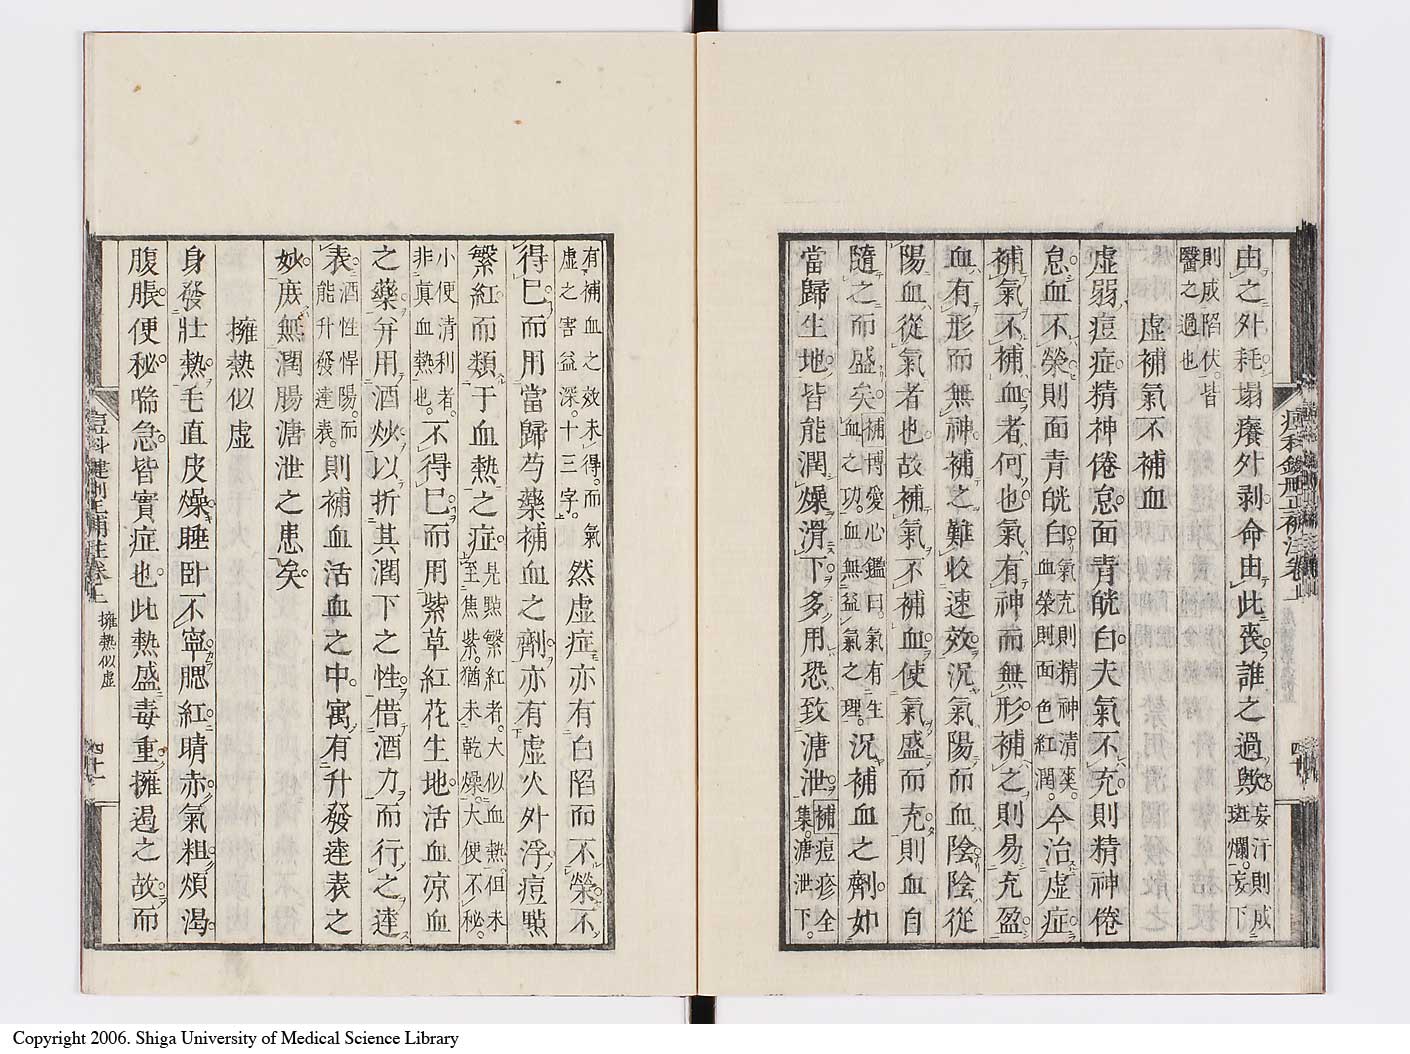 由之外耗塌癢外剥命由此喪誰之過歟妄汗則成斑爛妄下
則成陷伏皆醫之過也
虚補氣不補血
虚弱痘症精神倦怠面青皝白夫氣不充則精神倦
怠血不榮則面青皝白氣充則精神清爽血榮則面色紅潤今治虚症
補氣不補血者何也氣有神而無形補之則易充盈
血有形而無神補之難收速效況氣陽而血陰陰從
陽血從氣者也故補氣不補血使氣盛而充則血自
隨之而盛矣補博愛心鑑曰氣有生血之功血無益氣之理況補血之劑如
當歸生地皆能潤燥滑下多用恐致溏泄補痘疹全集溏泄下
有補血之效未得而氣虚之害益深十三字然虚症亦有白陷而不榮不
得已而用當歸芍藥補血之劑亦有虚火外浮痘㸃
繁紅而類于血熱之症是㸃繁紅者大似血熱但未至焦紫猶未乾燥大便不秘
小便清利者非真血熱也不得已而用紫草紅花生地活血凉血
之藥弁用酒炒以折其潤下之性借酒力而行之達
表酒性悍陽而能升發達表則補血活血之中寓有升發達表之
妙庶無潤腸溏泄之患矣
擁熱似虚
身發壯熱毛直皮燥睡卧不寧腮紅睛赤氣粗煩渴
腹脹便秘喘急皆實症也此熱盛毒重擁遏之故而
擁熱似虚
四十一
Copyright 2006. Shiga University of Medical Science Library